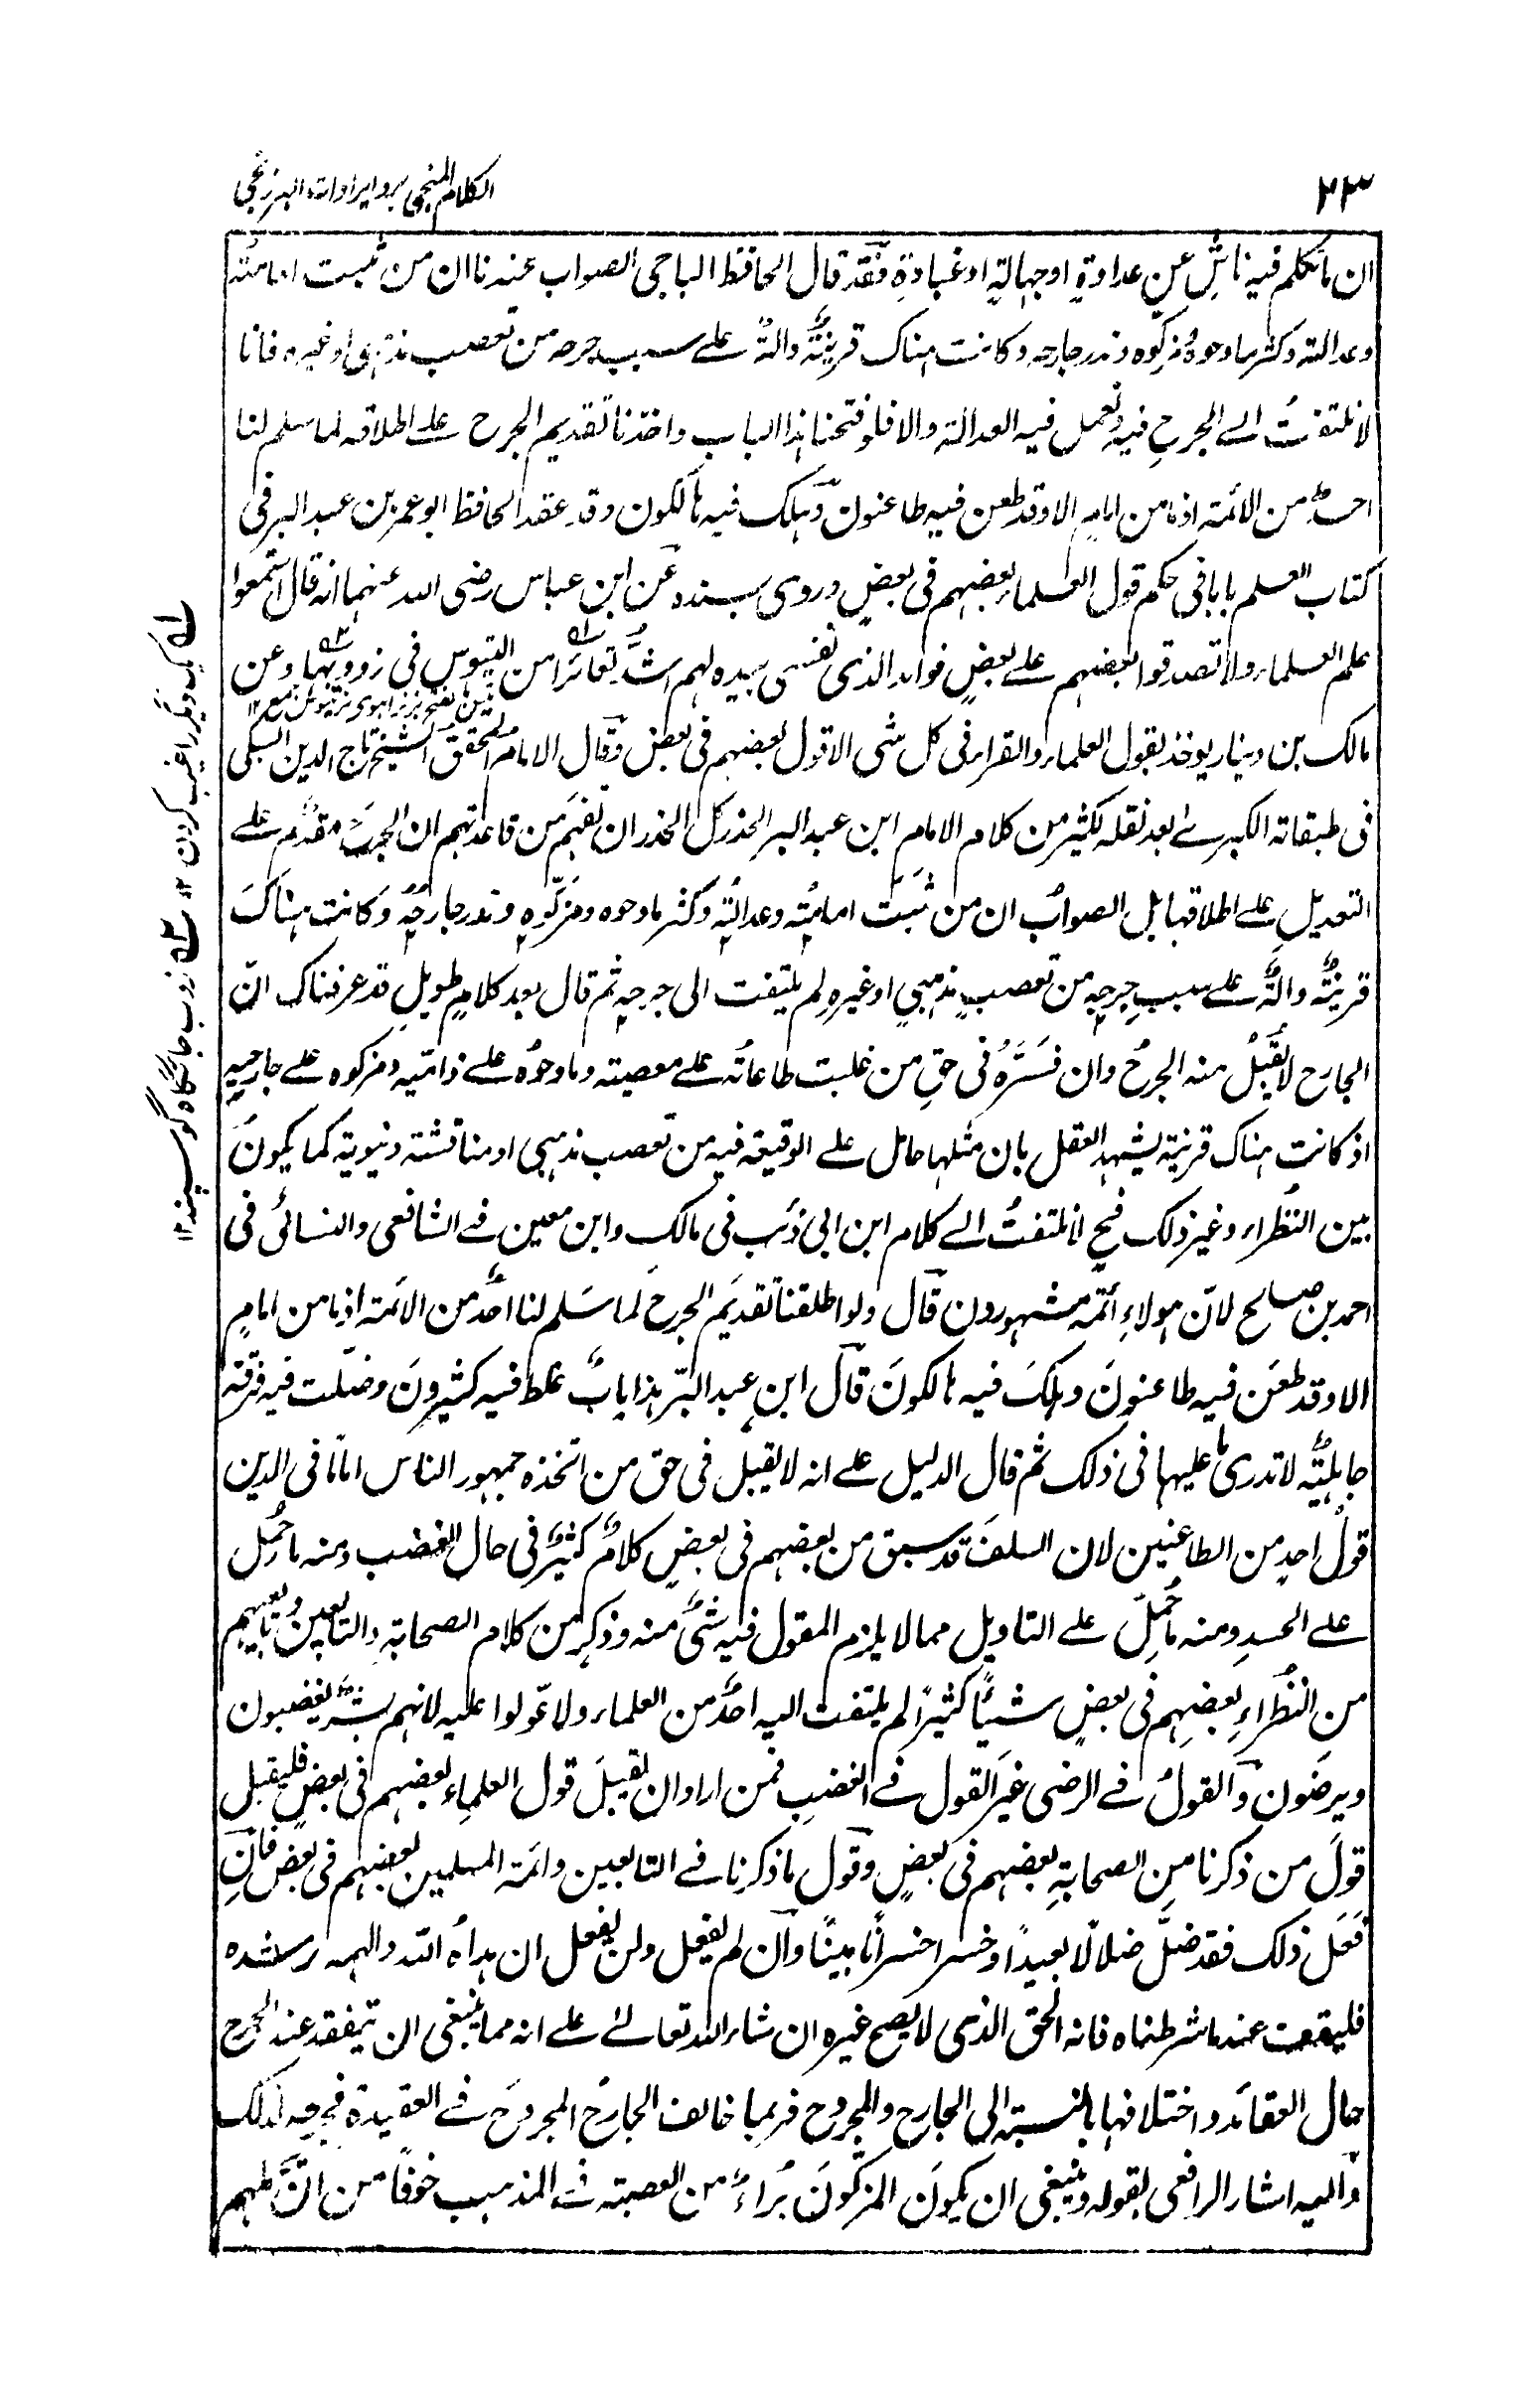 ٢٣
الكلام المنجي برد ايرادات البرزنجي
ان ما تكلم فيه ناشٍ عن عداوةٍ او جهالةٍ او غباوةٍ فقد قال الحافظ الباجي الصواب عندنا ان من ثبت امامته
وعدالته وكثر مادحوه ومزكوه وندر جارحه وكانت هناك قرينةٌ دالةٌ على سبب جرحه من تعصب مذهبي او غيره فانا
لا نلتفت الى الجرح فيه ونعمل فيه العدالة والا فلو فتحنا هذا الباب واخذنا تقديم الجرح على اطلاقه لما سلم لنا
احدٌ من الائمة اذ ما من امامٍ الا وقد طعن فيه طاعنون وهلك فيه هالكون وقد عقد الحافظ ابو عمر بن عبد البر في
كتاب العلم بابا في حكم قول العلماء بعضهم في بعضٍ وروى بسنده عن ابن عباس رضى الله عنهما انه قال استمعوا
علم العلماء ولا تصدقوا بعضهم على بعضٍ فوالله الذى نفسى بيده لهم اشدُّ تغائرًا من التيوس فى زروبها وعن
مالك بن دينار يوخذ بقول العلماء والقراء فى كل شى الا قول بعضهم فى بعض وقال الامام المحقق الشيخ تاج الدين السبكى
فى طبقاته الكبرى بعد نقله لكثير من كلام الامام ابن عبد البر الحذر كل الحذر ان تفهم من قاعدتهم ان الجرحَ مقدَّم على
التعديل على اطلاقها بل الصوابُ ان من ثبتت امامتُه وعدالتُه وكثر مادحوه ومزكّوه وندر جارحُه وكانت هناك
قرينةٌ دالةٌ على سببِ جرحِه من تعصبٍ مذهبيٍ او غيرِه لم يلتفت الى جرحِه ثم قال بعد كلامٍ طويلٍ قد عرفناك انّ
الجارح لا يُقبلُ منه الجرحُ وان فسَّرَهُ فى حقِ من غلبت طاعاتُه على معصيته ومادحوُه على ذامّيه ومزكوه على جارحيهِ
اذ كانت هناك قرينة يشهد العقل بان مثلها حامل على الوقيعة فيه من تعصب مذهبى او مناقشة دنيوية كما يكونُ
بين النُظراء وغير ذلك فح لا نلتفتُ الى كلام ابن ابى ذئب فى مالك وابن معين فى الشافعى والنسائى فى
احمد بن صالح لانّ هولاءِ أئمّة مشهورون قال ولو اطلقنا تقديم الجرح لما سَلم لنا احدٌ من الائمة اذ ما من امامٍ
الا وقد طعَن فيه طاعنونَ وهلكَ فيه هالكونَ قال ابن عبد البرّ هذا بابٌ غلط فيه كثيرونَ وضلّت فيه فرقة
جاهليةٌ لا تدرى ما عليها فى ذلك ثم قال الدليل على انه لا يقبل فى حق من اتخذه جمهور الناس امامًا فى الدين
قولُ احدٍ من الطاعنين لان السلفَ قد سبق من بعضهم فى بعضٍ كلامٌ كثيرٌ فى حال الغضب ومنه ما حُمل
على الحسدِ ومنه ما حُمِلَ على التاويل مما لا يلزم المقول فيه شىٌ منه وذكر من كلام الصحابة والتابعين وتابعيهم
من النُظراءِ بعضِهم فى بعضٍ شيئًا كثيرًا لم يلتفت اليه احدٌ من العلماء ولا عوّلوا عليه لانهم بشرٌ يغضبون
ويرضَون والقولُ فى الرضى غيرُ القول فى الغضبِ فمن اراد ان يقبلَ قول العلماءِ بعضِهم فى بعضٍ فليقبل
قولَ من ذكرنا من الصحابةِ بعضهم فى بعضٍ وقول ما ذكرنا فى التابعين وائمة المسلمين بعضهم فى بعض فانّ
فَعَل ذلك فقد ضلَّ ضلالًا بعيدًا وخسر خسرانًا مبينًا وان لم يفعل ولن يفعل ان هداهُ الله والهمه رشده
فليقف عند ما شرطناه فانه الحق الذى لا يصح غيره ان شاء الله تعالى على انه مما ينبغى ان يتفقد عند الجرح
حال العقائد واختلافها بالنسبة الى الجارح والمجروح فربما خالف الجارحُ المجروحَ فى العقيدة فجرحه لذلك
واليه اشار الرافعى بقوله وينبغى ان يكونَ المزكونَ بُراءً من العصبة فى المذهب خوفًا من ان يحملهم
لے يكديگر را غيب كردن ١٢
٢ے زرب جائگاه گوسپند ١٢